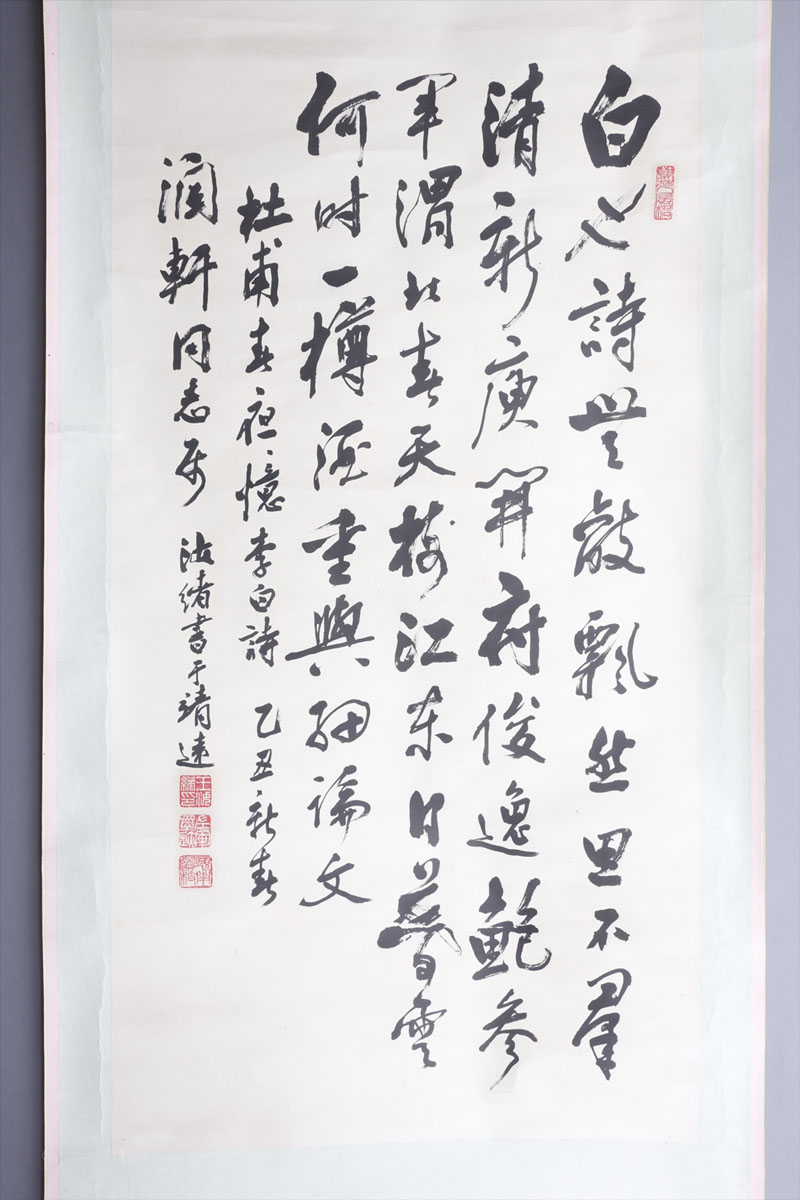 白也詩無敵飄然思不羣
清新庾開府俊逸鮑參
軍渭北春天樹江東日暮雲
何時一樽酒重與細論文
杜甫春夜憶李白詩 乙丑新春
潤軒同志属 緒書于靖遠